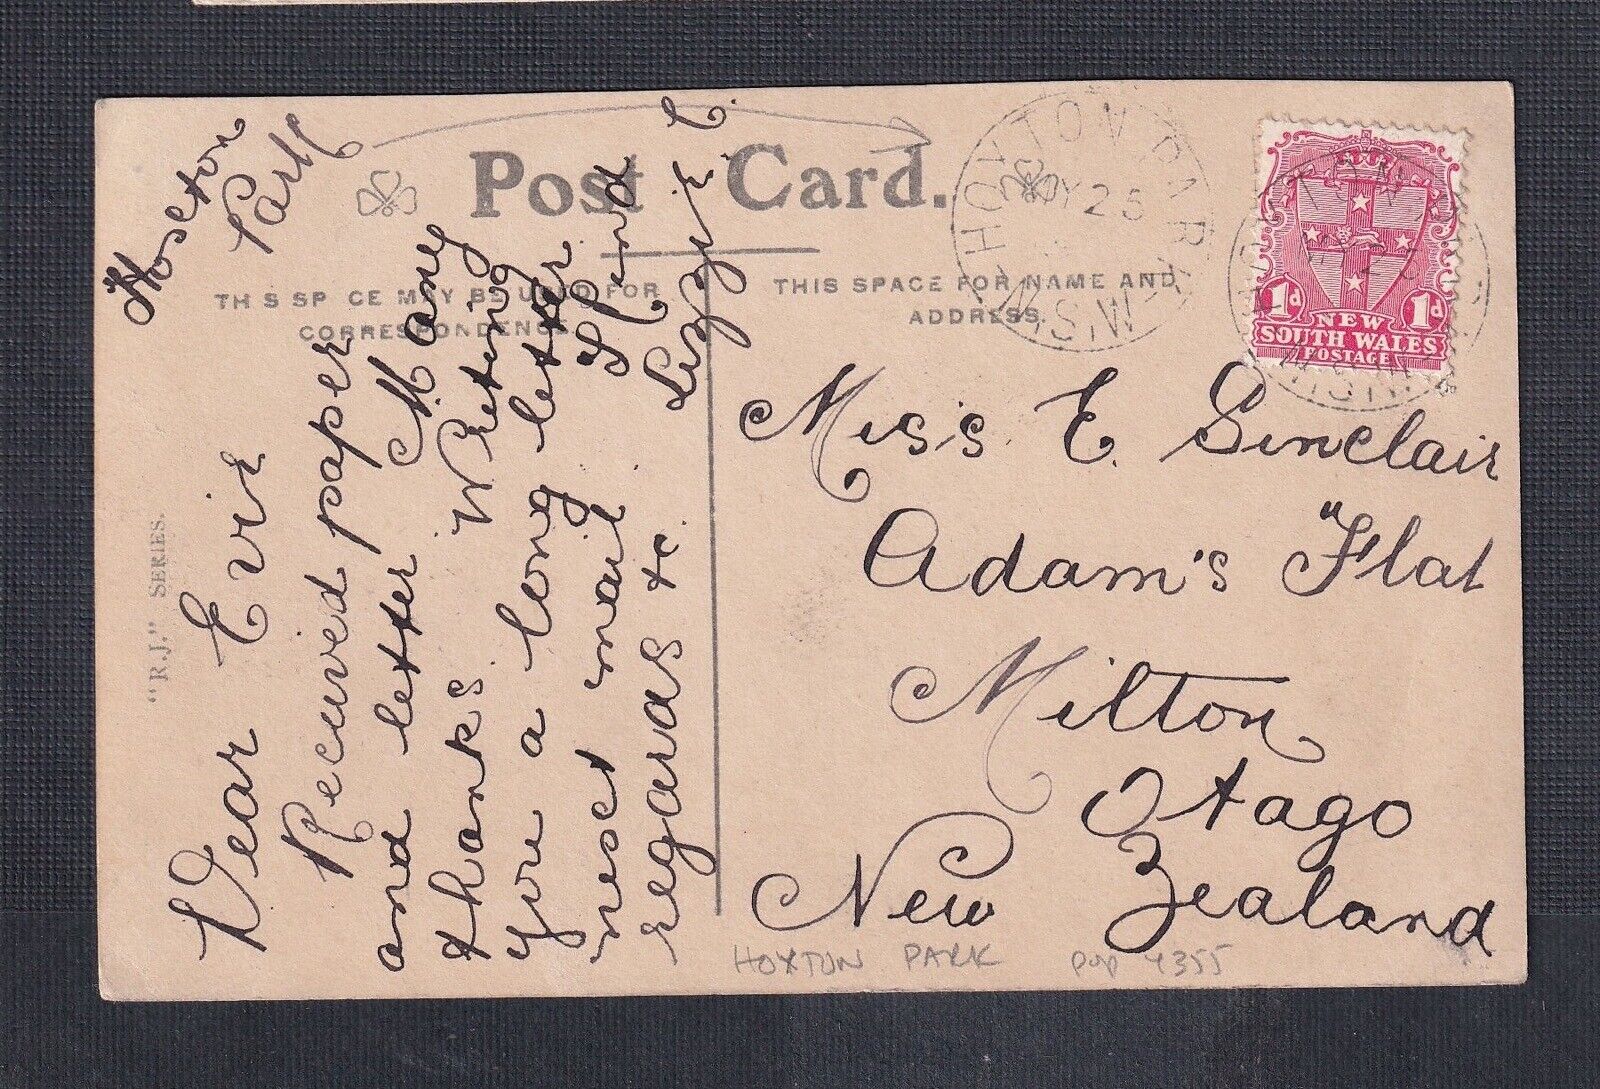 Post Card.
THIS SPACE MAY BE USED FOR
CORRESPONDENCE.
THIS SPACE FOR NAME AND
ADDRESS.
HOXTON PARK
MY 25
N.S.W
MY 25
N.S.W
1d 1d
NEW
SOUTH WALES
POSTAGE
Hoxton
Park
Dear Evie
Received paper
and letter Many
thanks Writing
you a long letter
next mail Kind
regards &c Lizzie C.
Miss E. Sinclair
Adam's "Flat
Milton
Otago
New Zealand
"R.J." SERIES.
HOXTON PARK pop 4355